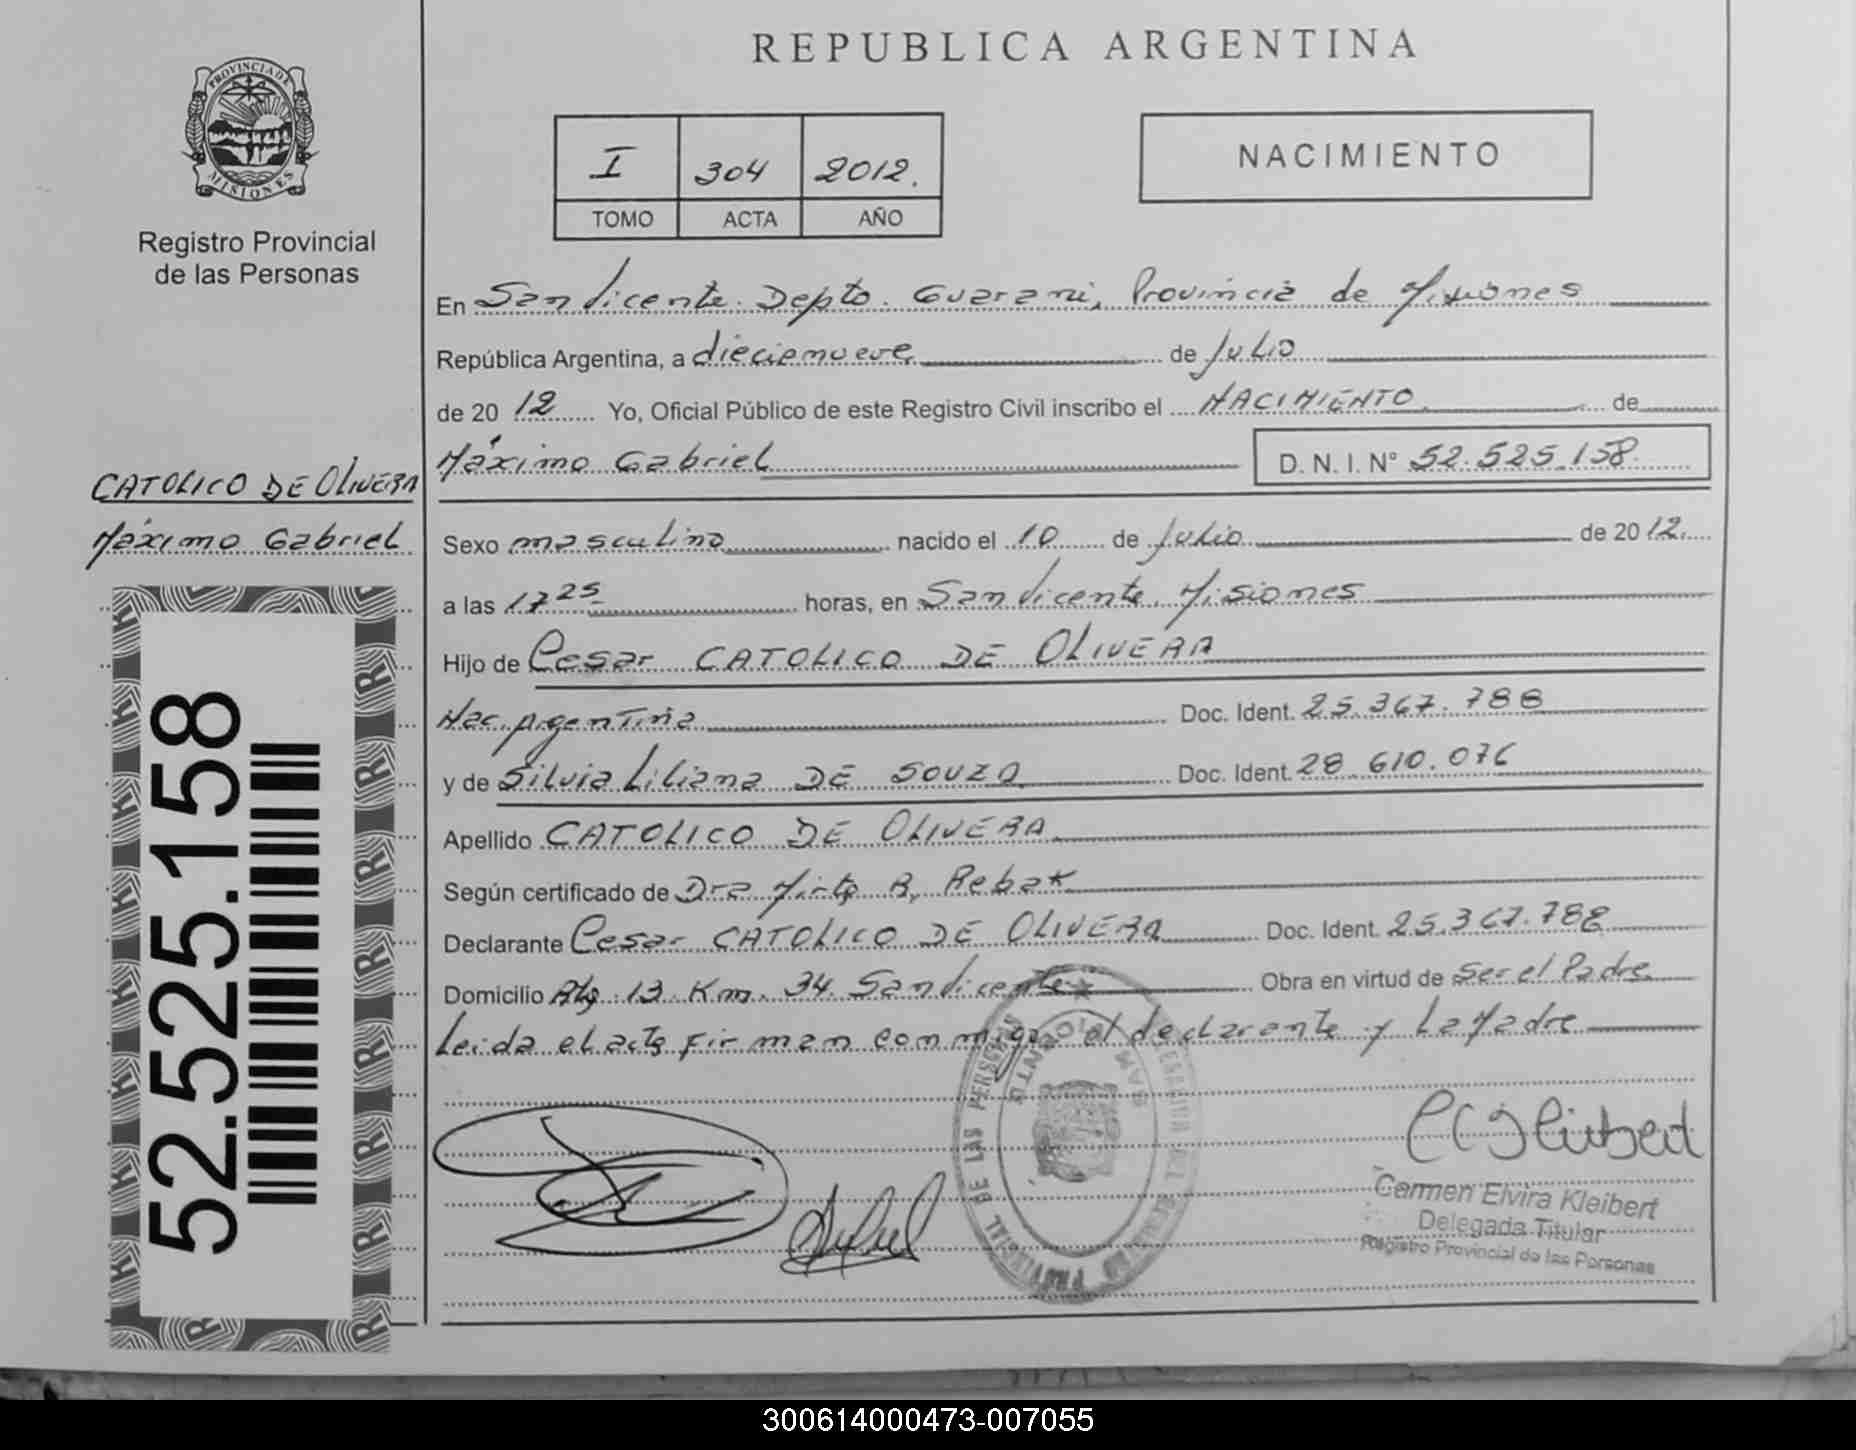 REPUBLICA ARGENTINA
PROVINCIA DE
MISIONES
Registro Provincial
de las Personas
I 304 2012.
TOMO ACTA AÑO
NACIMIENTO
En San Vicente. Depto. Guarani, Provincia de Misiones
República Argentina, a diecienueve de Julio
de 20 12 Yo, Oficial Público de este Registro Civil inscribo el NACIMIENTO de
Máximo Gabriel D. N. I. N° 52.525.158
CATOLICO DE OLIVERA
Máximo Gabriel
Sexo masculino nacido el 10 de Julio de 20 12.
a las 17 25 horas, en San Vicente. Misiones
Hijo de Cesar CATOLICO DE OLIVERA
Nac. Argentina Doc. Ident. 25.367.788
y de Silvia Liliana DE SOUZA Doc. Ident. 28 610.076
Apellido CATOLICO DE OLIVERA
Según certificado de Dra Mirta R. Rebak
Declarante Cesar CATOLICO DE OLIVERA Doc. Ident. 25.367.788
Domicilio Plg 13 Km. 34 San Vicente Obra en virtud de Ser el Padre
Leida el acta firman conmigo el declarante y La Madre
52.525.158
Carmen Elvira Kleibert
Delegada Titular
Registro Provincial de las Personas
300614000473-007055